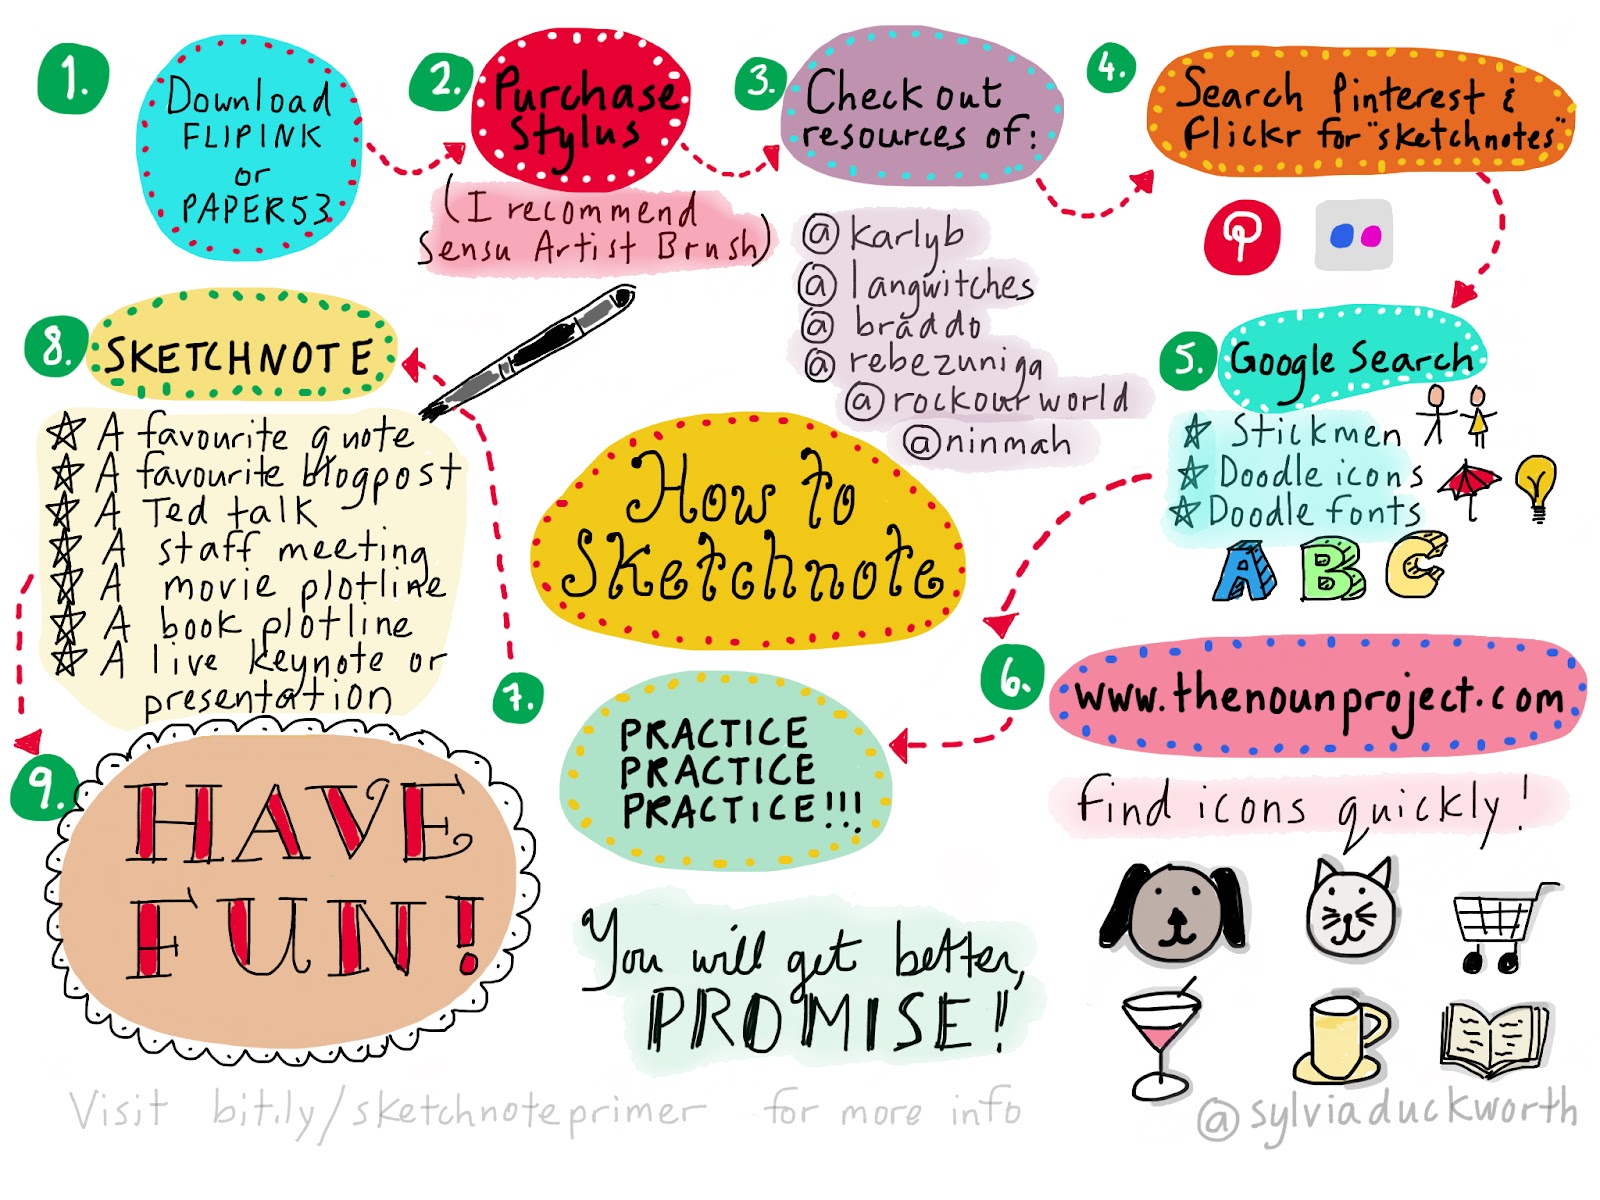 1.
Download
FLIPINK
or
PAPER53
2.
Purchase
Stylus
(I recommend
Sensu Artist Brush)
3.
Check out
resources of:
@karlyb
@langwitches
@braddo
@rebezuniga
@rockourworld
@ninmah
4.
Search Pinterest &
Flickr for "sketchnotes"
5.
Google Search
☆ Stickmen
☆ Doodle icons
☆ Doodle fonts
A B C
How to
Sketchnote
6.
www.thenounproject.com
Find icons quickly!
7.
PRACTICE
PRACTICE
PRACTICE!!!
You will get better,
PROMISE!
8.
SKETCHNOTE
☆ A favourite quote
☆ A favourite blogpost
☆ A Ted talk
☆ A staff meeting
☆ A movie plotline
☆ A book plotline
☆ A live keynote or
presentation
9.
HAVE
FUN!
Visit bit.ly/sketchnoteprimer for more info
@sylviaduckworth